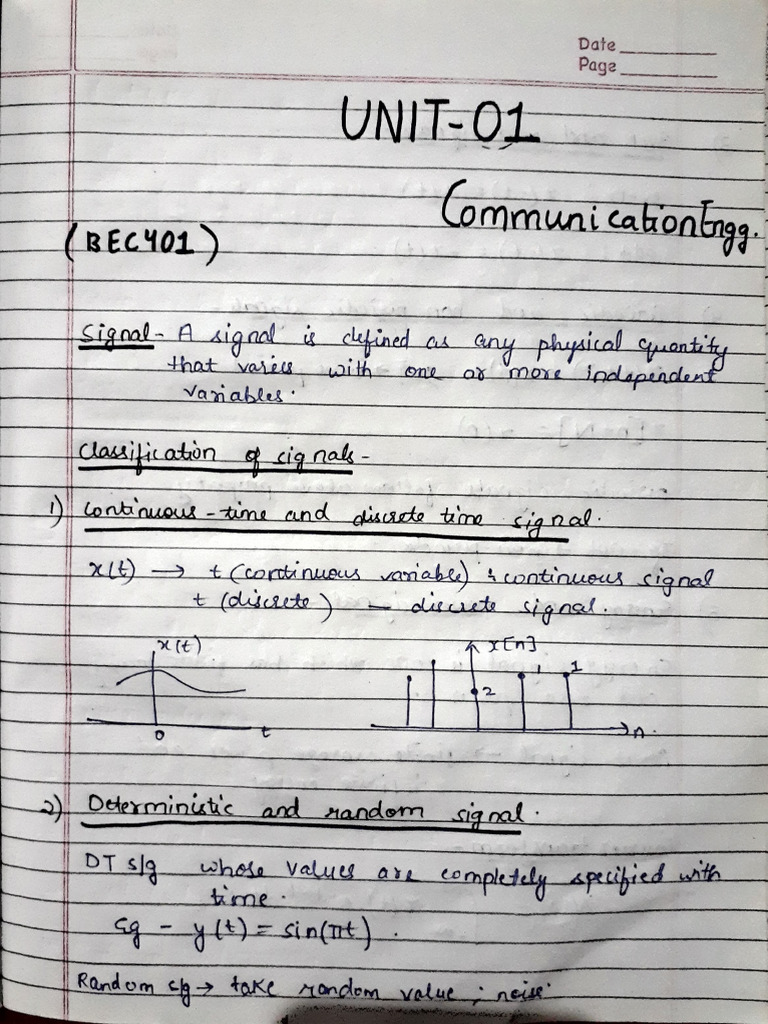 Date
Page
UNIT-01
Communication Engg.
(BEC401)
Signal - A signal is defined as any physical quantity
that varies with one or more independent
variables.
Classification of signals -
1) Continuous-time and discrete time signal.
x(t) → t (continuous variable) : continuous signal
t (discrete) — discrete signal.
x(t) x[n]
2 1 1
0 t n.
2) Deterministic and random signal.
DT s/g whose values are completely specified with
time.
Eg - y(t) = sin(πt).
Random s/g → take random value ; noise.